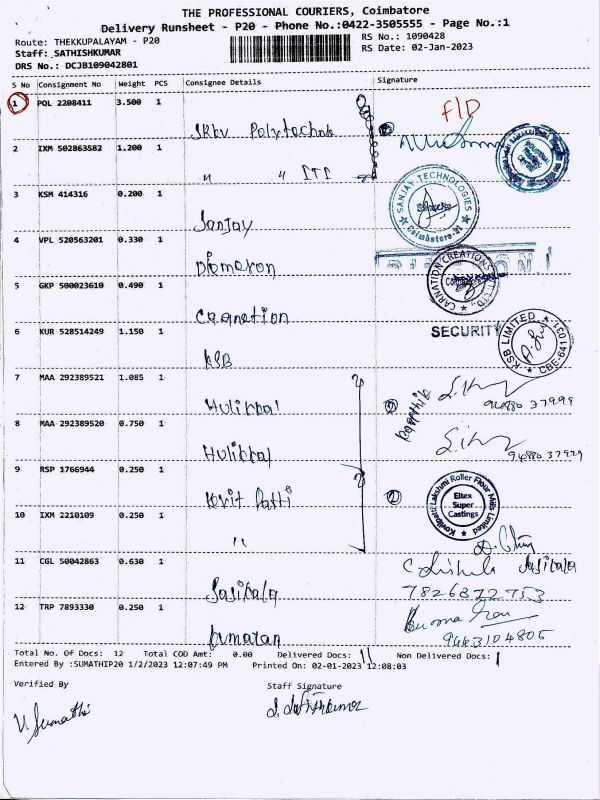 THE PROFESSIONAL COURIERS, Coimbatore
Delivery Runsheet - P20 - Phone No.:0422-3505555 - Page No.:1
Route: THEKKUPALAYAM - P20
RS No.: 1090428
Staff: SATHISHKUMAR
RS Date: 02-Jan-2023
DRS No.: DCJB109042801
S No Consignment No Weight PCS Consignee Details Signature
1 PQL 2208411 3.500 1
F/D
Polytechnic
2 IXM 502863582 1.200 1
" " ITI
3 KSM 414316 0.200 1
SANJAY TECHNOLOGIES
Coimbatore
Sanjay
4 VPL 520563201 0.330 1
5 GKP 500023610 0.490 1
CARNATION CREATIONS
Cagnetion
6 KUR 528514249 1.150 1
SECURITY
KSB LIMITED
KSB
7 MAA 292389521 1.085 1
Hulikkal
94880 37999
8 MAA 292389520 0.750 1
Hulikkal
94880 37999
9 RSP 1766944 0.250 1
Kovilpatti Lakshmi Roller Flour Mills Limited
Eltex
Super
Castings
Kovil Patti
10 IXM 2210109 0.250 1
"
11 CGL 50042863 0.630 1
Sasikala
Sasikala
7826872753
12 TRP 7893330 0.250 1
Kumaran
9483104805
Total No. Of Docs: 12 Total COD Amt: 0.00 Delivered Docs: 11 Non Delivered Docs: 1
Entered By :SUMATHIP20 1/2/2023 12:07:49 PM Printed On: 02-01-2023 12:08:03
Verified By
Staff Signature
V. Sumathi
S. Sathishkumar